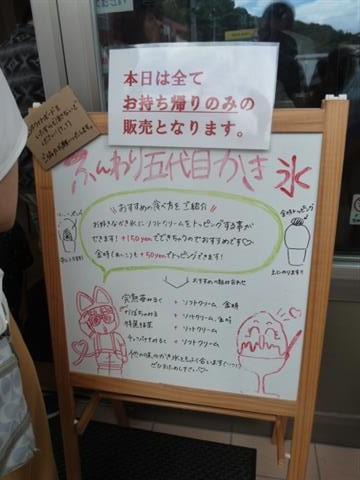 本日は全て
お持ち帰りのみの
販売となります。
ふんわり五代目かき氷
おすすめの食べ方をご紹介
お好きなかき氷にソフトクリームをトッピングする事が
できます!+150yenでできちゃうのでおすすめです♡
金時(あんこ)も+50yenでトッピングできます!
おすすめの組み合わせ
完熟苺みるく + ソフトクリーム 金時
かぼちゃみるく + ソフトクリーム、金時
特選抹茶 + ソフトクリーム
+ ソフトクリーム
他の味のかき氷ともよく合います
ぜひおためしください♡
金時トッピング
上にのります!!